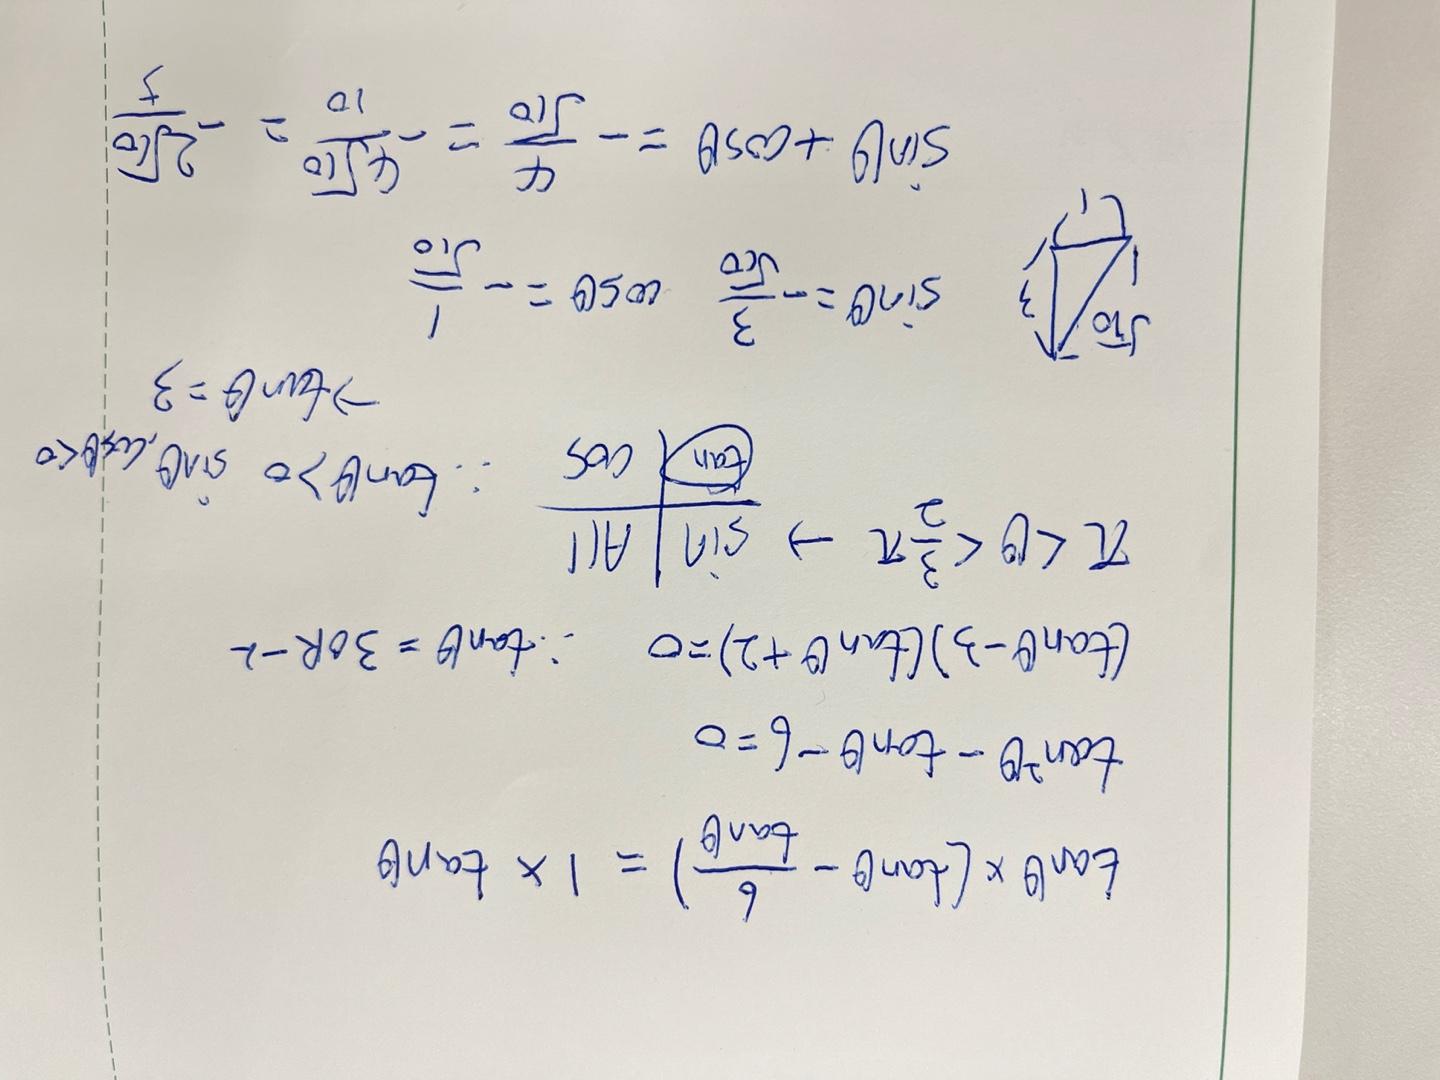 tanθ × (tanθ - 6/tanθ) = 1 × tanθ
tan²θ - tanθ - 6 = 0
(tanθ-3)(tanθ+2)=0 ∴ tanθ = 3 OR -2
π < θ < 3/2 π → sin | All
tan | cos ∴ tanθ>0 sinθ, cosθ<0
→ tanθ = 3
√10 3 1
sinθ = - 3/√10 cosθ = - 1/√10
sinθ + cosθ = - 4/√10 = - 4√10/10 = - 2√10/5